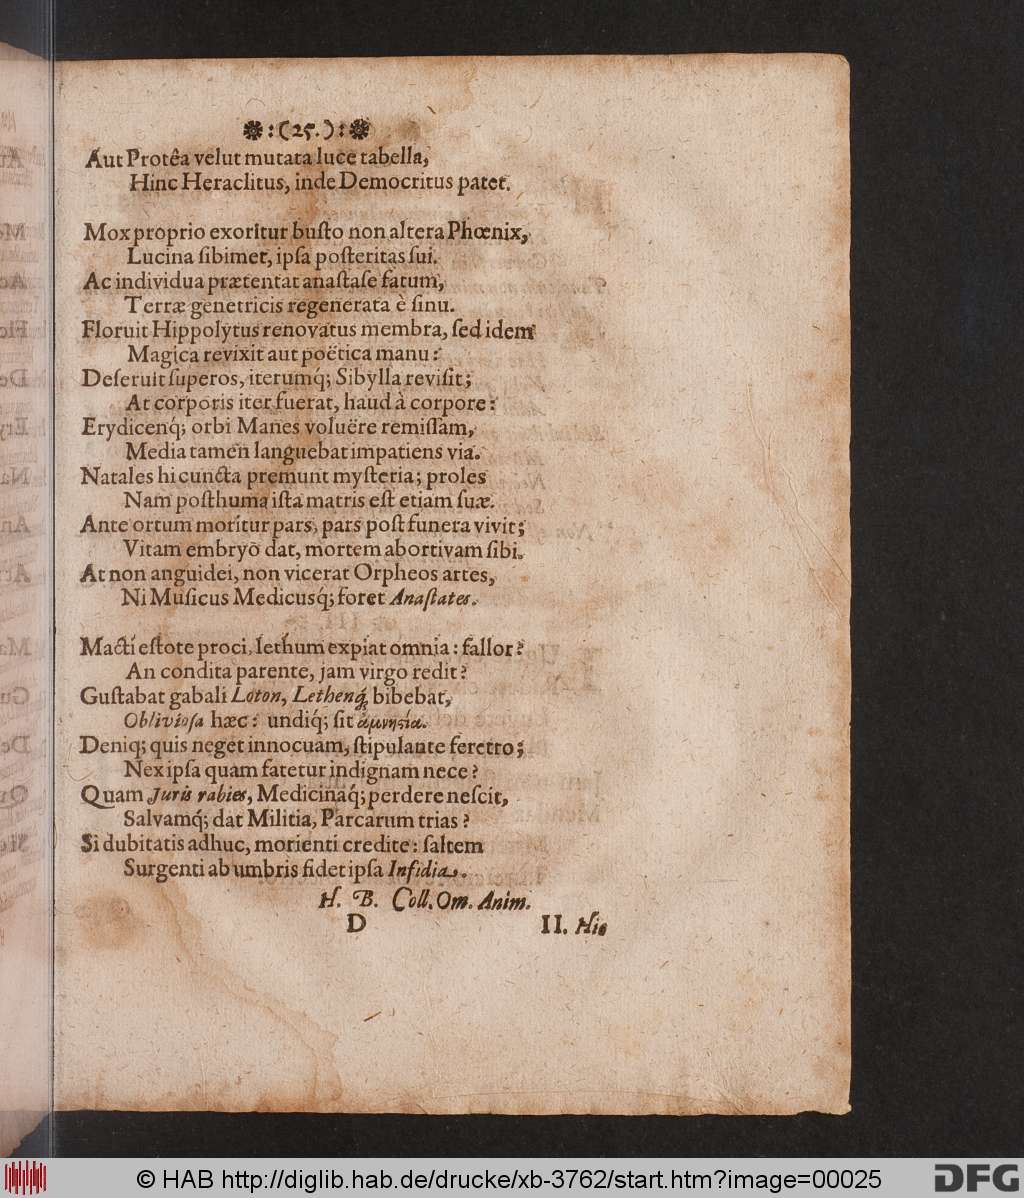 ❋:(25.):❋
Aut Protêa velut mutata luce tabella,
Hinc Heraclitus, inde Democritus patet.
Mox proprio exoritur buſto non altera Phœnix,
Lucina ſibimet, ipſa poſteritas ſui.
Ac individua prætentat anaſtaſe fatum,
Terræ genetricis regenerata è ſinu.
Floruit Hippolytus renovatus membra, ſed idem
Magica revixit aut poëtica manu:
Deſeruit ſuperos, iterumq́; Sibylla reviſit;
At corporis iter fuerat, haud à corpore:
Erydicenq́; orbi Manes voluëre remiſſam,
Media tamen languebat impatiens via.
Natales hi cuncta premunt myſteria; proles
Nam poſthuma iſta matris eſt etiam ſuæ.
Ante ortum moritur pars, pars poſt funera vivit;
Vitam embryo dat, mortem abortivam ſibi.
At non anguidei, non vicerat Orpheos artes,
Ni Muſicus Medicusq́; foret Anaſtates.
Macti eſtote proci, lethum expiat omnia: fallor?
An condita parente, jam virgo redit?
Guſtabat gabali Loton, Lethenq́ bibebat,
Oblivioſa hæc: undiq́; ſit ἀμνησία.
Deniq; quis neget innocuam, ſtipulante feretro;
Nex ipſa quam fatetur indignam nece?
Quam Juris rabies, Medicinaq́; perdere neſcit,
Salvamq́; dat Militia, Parcarum trias?
Si dubitatis adhuc, morienti credite: ſaltem
Surgenti ab umbris fidet ipſa Infidias.
H. B. Coll. Om. Anim.
D II. Hic
© HAB http://diglib.hab.de/drucke/xb-3762/start.htm?image=00025
DFG